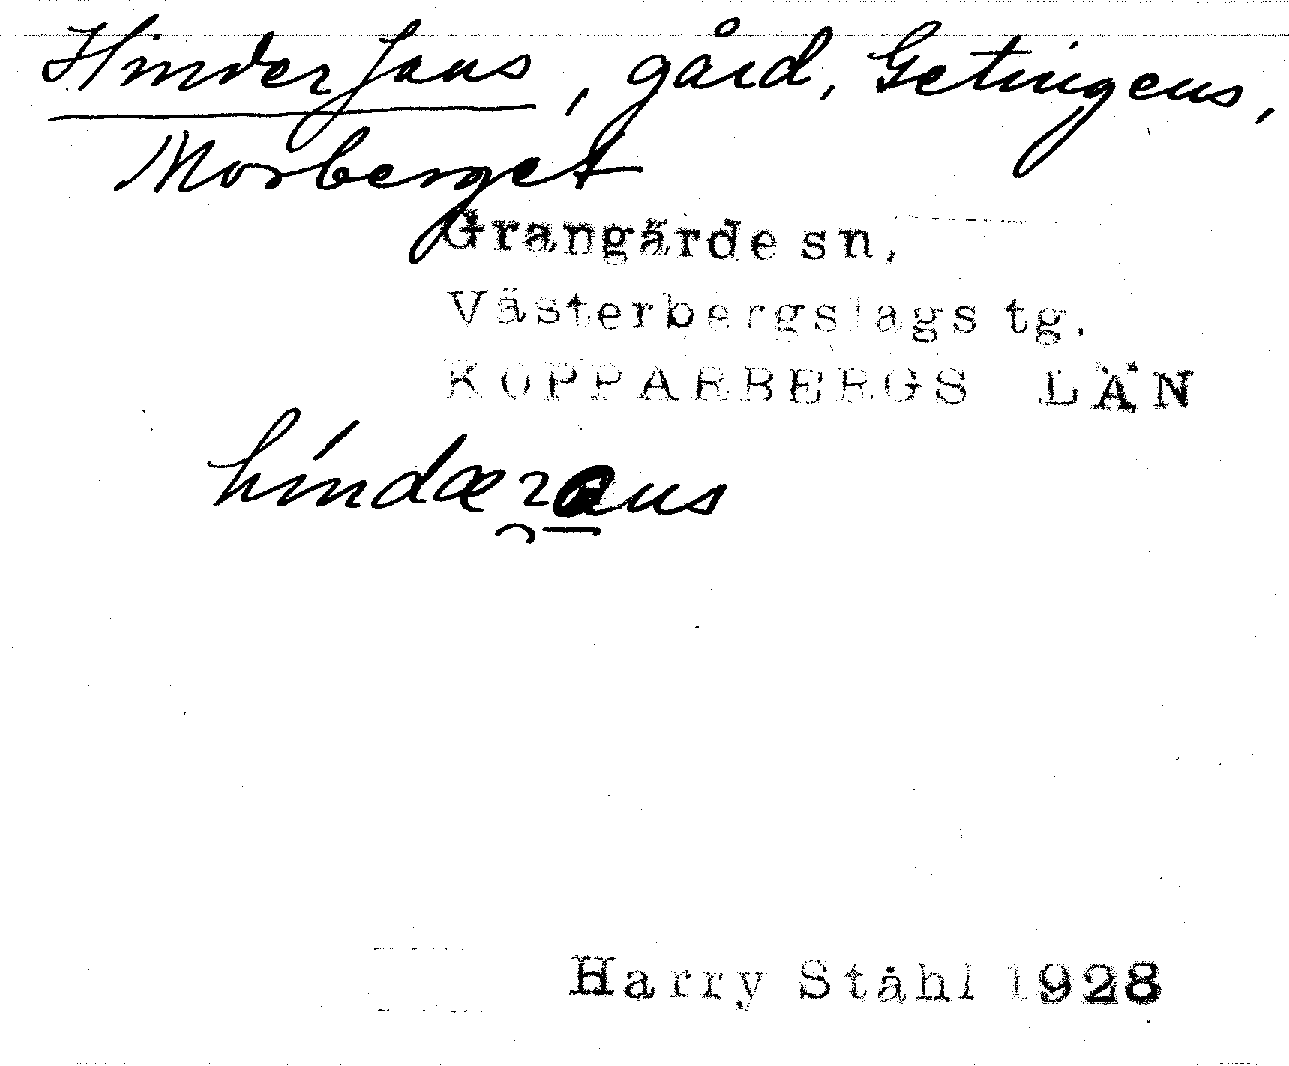 Hinderjans, gård, Getingens,
Morberget
Grangärde sn.
Västerbergslags tg.
KOPPARBERGS LÄN
Harry Ståhl 1928